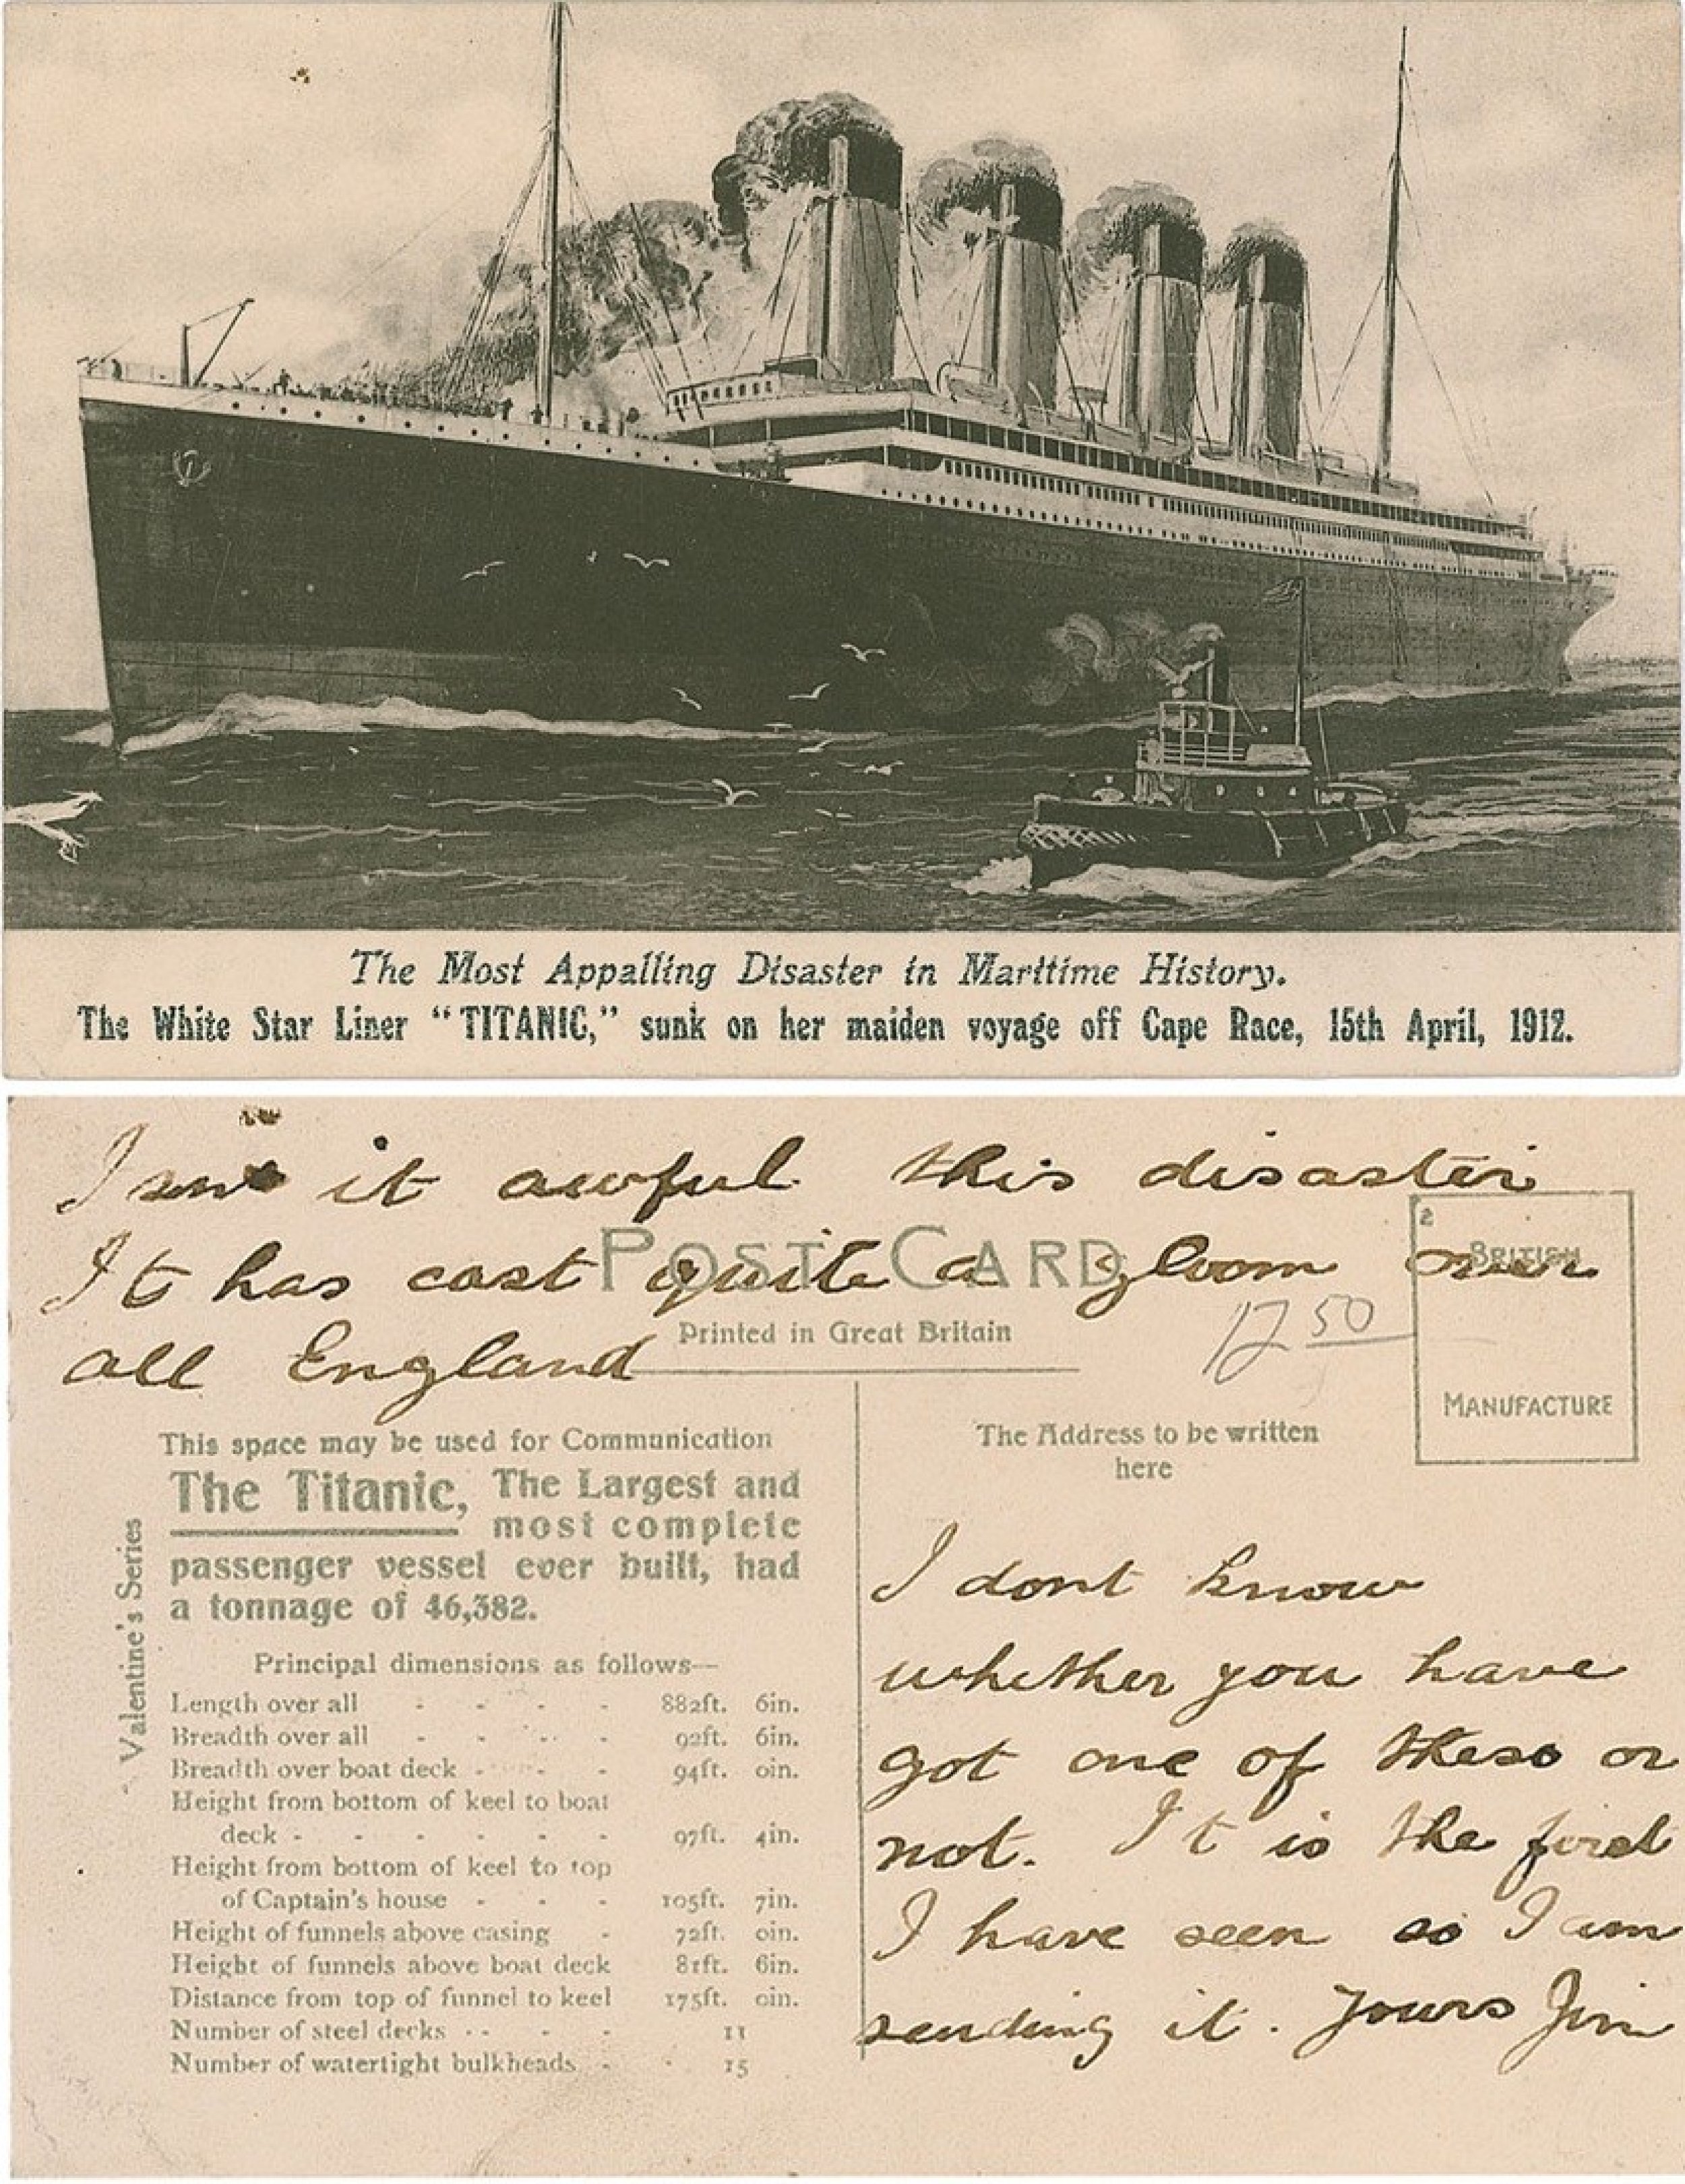 The Most Appalling Disaster in Maritime History.
The White Star Liner "TITANIC," sunk on her maiden voyage off Cape Race, 15th April, 1912.
Isnt it awful this disaster
It has cast quite a gloom over
all England
POST CARD
Printed in Great Britain
12 50
BRITISH
MANUFACTURE
This space may be used for Communication
The Titanic, The Largest and
most complete
passenger vessel ever built, had
a tonnage of 46,382.
Principal dimensions as follows—
Length over all - - - - 882ft. 6in.
Breadth over all - - - - 92ft. 6in.
Breadth over boat deck - - - 94ft. 0in.
Height from bottom of keel to boat
deck - - - - - - 97ft. 4in.
Height from bottom of keel to top
of Captain's house - - - 105ft. 7in.
Height of funnels above casing - 72ft. 0in.
Height of funnels above boat deck 81ft. 6in.
Distance from top of funnel to keel 175ft. 0in.
Number of steel decks - - - - 11
Number of watertight bulkheads - - 15
Valentine's Series
The Address to be written
here
I dont know
whether you have
got one of these or
not. It is the first
I have seen so I am
sending it. Yours Jim